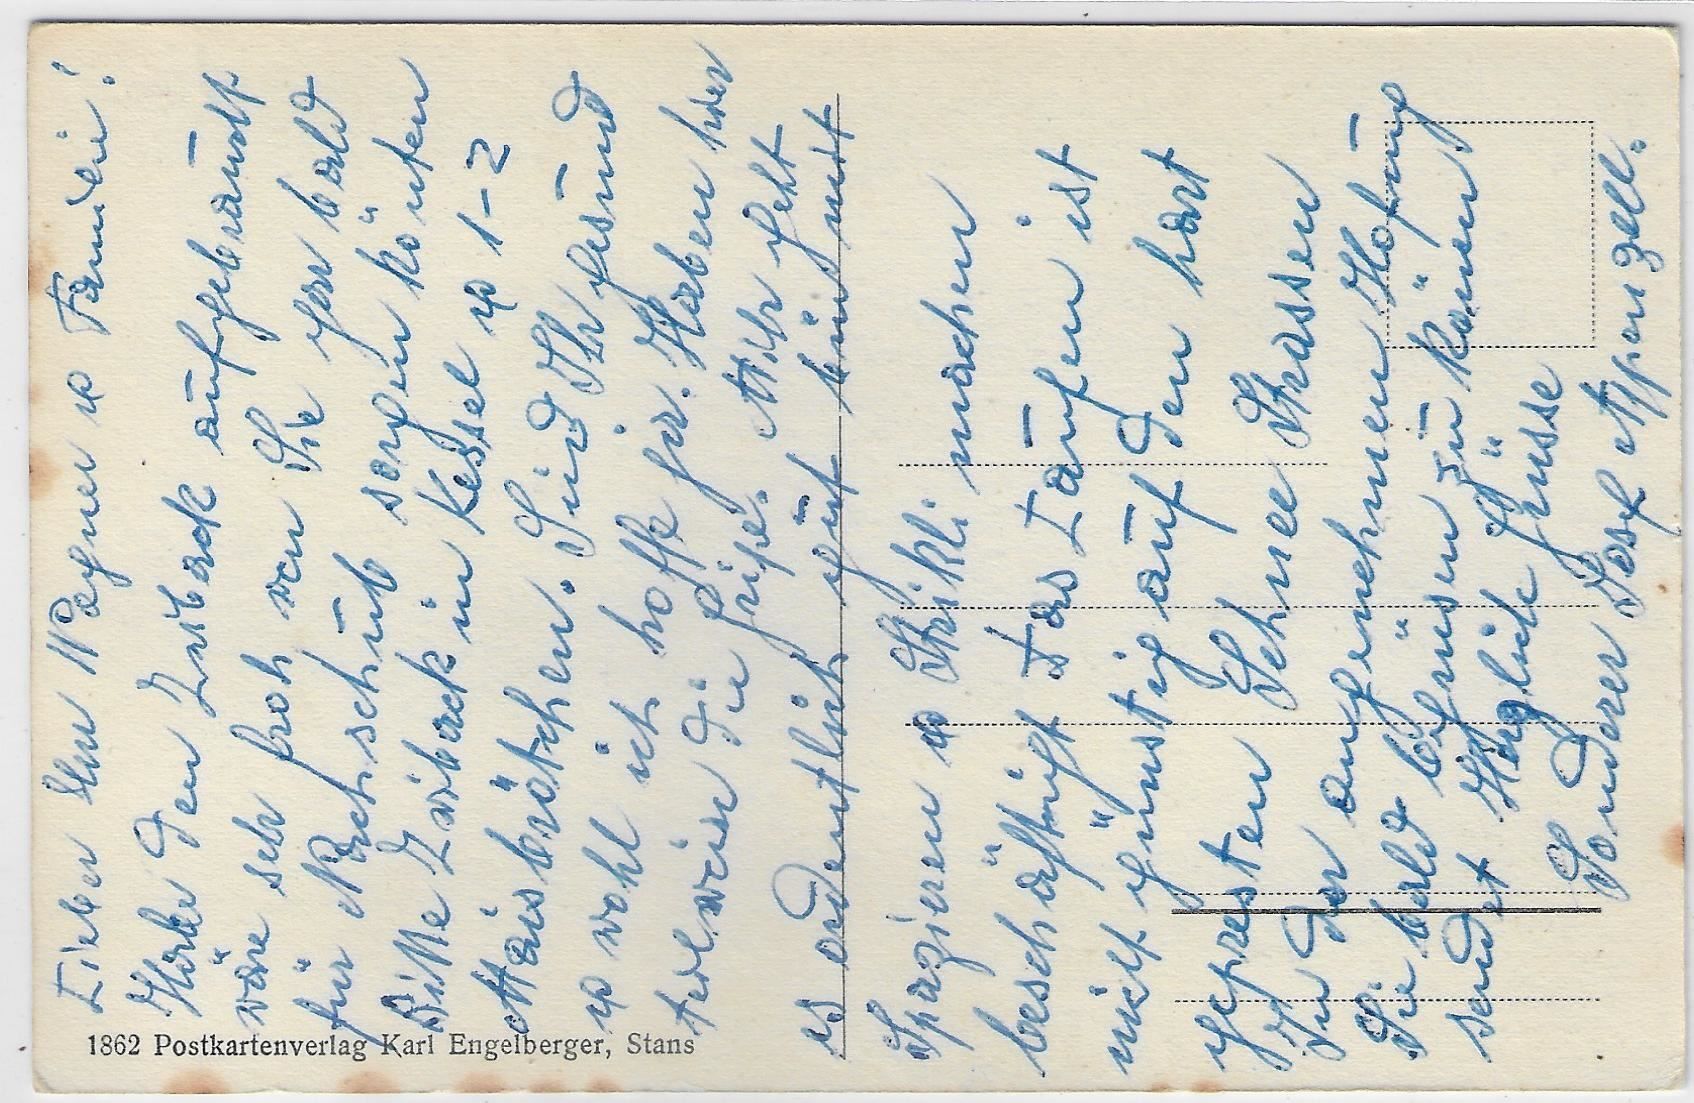 Lieber Herr Wagner u Familie!
Habe den Zwiback aufgebraucht
wäre sehr froh wen Sie gar bald
für Nachschub sorgen könten
Bitte Zwiback in Kessel u 1-2
Maisbrötchen. Sind Ihr gesund
u wohl ich hoffe ja. Haben hier
teilweise die Gripe. Mihr geht
es ordentlich gut bin mit
Spazieren u Strikli machen
beschäftigt das Laufen ist
nicht günstig auf den hart
gepresten Schnee Strassen
In der angenehmen Hofnung
Sie bald begrüsen zu könen
sendet Herzliche Grüsse
Sonderer Josef Appenzell.
1862 Postkartenverlag Karl Engelberger, Stans